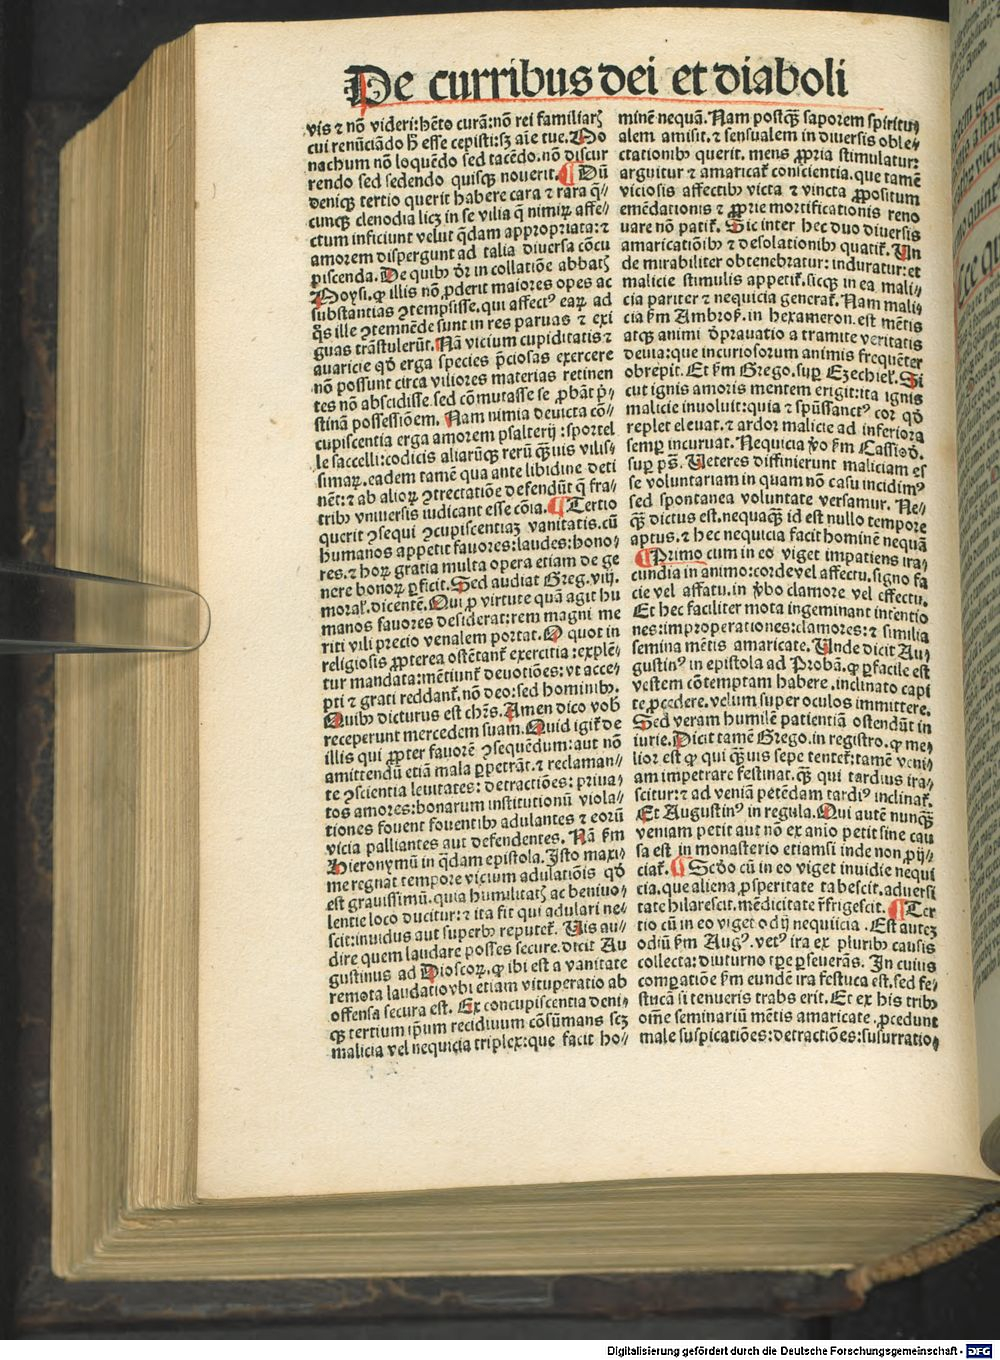 De curribus dei et diaboli
vis ⁊ nō videri: hēto curā: nō rei familiarꝫ
cui renūciādo hꝰ esse cepisti: sꝫ aīe tue. Mo
nachum nō loquēdo sed tacēdo. nō discur
rendo sed sedendo quisqꝫ nouerit. ¶ Dū
deniqꝫ tertio querit habere cara ⁊ rara q̄⸗
cunqꝫ clenodia licꝫ in se vilia q̄ nimiꝝ affe⸗
ctum inficiunt velut q̄dam appropriata: ⁊
amorem dispergunt ad talia diuersa cōcu
piscenda. De quibꝰ dr̄ in collatiōe abbatꝭ
Moysi. ꝙ illis nō ꝓderit maiores opes ac
substantias ꝯtempsisse. qui affectꝰ eaꝝ ad
q̄s ille ꝯtemnēde sunt in res paruas ⁊ exi
guas trāstulerūt. Nā vicium cupiditatis ⁊
auaricie qd̄ erga species p̄ciosas exercere
nō possunt circa viliores materias retinen
tes nō abscidisse sed cōmutasse se ꝓbāt p̄⸗
stinā possessiōem. Nam nimia deuicta cō⸗
cupiscentia erga amorem psalterij: sportel
le saccelli: codicis aliarūqꝫ rerū q̄ꝫuis vilis⸗
simaꝝ. eadem tamē qua ante libidine deti
nēt: ⁊ ab alioꝝ ꝯtrectatiōe defendūt q̄ fra⸗
tribꝰ vniuersis iudicant esse cōia. ¶ Tertio
querit ꝯsequi ꝯcupiscentiaꝫ vanitatis. cū
humanos appetit fauores: laudes: hono⸗
res. ⁊ hoꝝ gratia multa opera etiam de ge
nere bonoꝝ ꝑficit. Sed audiat Greg. viij.
moral̕. dicentē. Qui ꝓ virtute quā agit hu
manos fauores desiderat: rem magni me
riti vili precio venalem portat. O quot in
religiosis ꝓpterea ostētant̕ exercitia: explē⸗
tur mandata: mētiunt̕ deuotiōes: vt acce⸗
pti ⁊ grati reddant̕. nō deo: sed hominibꝰ.
Quibꝰ dicturus est chr̄s. Amen dico vob̕
receperunt mercedem suam. Quid igit̕ de
illis qui ꝓpter fauorē ꝯsequēdum: aut nō
amittendū etiā mala ꝑpetrāt. ⁊ reclaman⸗
te ꝯscientia leuitates: detractiōes: priua⸗
tos amores: bonarum institutionū viola⸗
tiones fouent fouentibꝰ adulantes ⁊ eorū
vicia palliantes aut defendentes. Nā ẜm
Hieronymū in q̄dam epistola. Isto maxi⸗
me regnat tempore vicium adulatiōis qd̄
est grauissimū. quia humilitatꝭ ac beniuo⸗
lentie loco ducitur: ⁊ ita fit qui adulari ne⸗
scit: inuidus aut superbꝰ reputet̕. Vis au⸗
dire quem laudare posses secure. dicit Au
gustinus ad Dioscoꝝ. ꝙ ibi est a vanitate
remota laudatio vbi etiam vituperatio ab
offensa secura est. Ex concupiscentia deni⸗
qꝫ tertium ip̄um recidiuum cōsūmans scꝫ
malicia vel nequicia triplex: que facit ho⸗
minē nequā. Nam postq̄ꝫ saporem spiritu⸗
alem amisit. ⁊ sensualem in diuersis oble⸗
ctationibꝰ querit. mens ꝓpria stimulatur:
arguitur ⁊ amaricat̕ conscientia. que tamē
viciosis affectibꝰ victa ⁊ vincta ꝓpositum
emēdationis ⁊ ꝓprie mortificationis reno
uare nō patit̕. Sic inter hec duo diuersis
amaricatiōibꝰ ⁊ desolationibꝰ quatit̕. Un
de mirabiliter obtenebratur: induratur: et
malicie stimulis appetit̕. sicqꝫ in ea mali⸗
cia pariter ⁊ nequicia generat̕. Nam mali⸗
cia ẜm Ambros̕. in hexameron. est mētis
atqꝫ animi dp̄rauatio a tramite veritatis
deuia: que incuriosorum animis frequēter
obrepit. Et ẜm Grego. suꝑ Ezechiel̕. Si
cut ignis amoris mentem erigit: ita ignis
malicie inuoluit: quia ⁊ sp̄ussanctꝰ cor qd̄
replet eleuat. ⁊ ardor malicie ad inferiora
semꝑ incuruat. Nequicia ꝟo ẜm Cassiod̕.
suꝑ ps̄. Ueteres diffinierunt maliciam es
se voluntariam in quam nō casu incidimꝰ
sed spontanea voluntate versamur. Ne⸗
q̄ꝫ dictus est. nequaq̄ꝫ id est nullo tempore
aptus. ⁊ hec nequicia facit hominē nequā
¶ Primo cum in eo viget impatiens ira⸗
cundia in animo: corde vel affectu. signo fa
cie vel affatu. in ꝟbo clamore vel effectu.
Et hec faciliter mota ingeminant intentio
nes: improperationes: clamores: ⁊ similia
semina mētis amaricate. Unde dicit Au⸗
gustinꝰ in epistola ad Probā. ꝙ ꝑfacile est
vestem cōtemptam habere. inclinato capi
te ꝓcedere. velum super oculos immittere.
Sed veram humilē patientiā ostendūt in
iurie. Dicit tamē Grego. in registro. ꝙ me⸗
lior est ꝙ qui q̄ꝫuis sepe tentet̕: tamē veni⸗
am impetrare festinat. q̄ꝫ qui tardius ira⸗
scitur: ⁊ ad veniā petēdam tardiꝰ inclinat̕.
Et Augustinꝰ in regula. Qui autē nunq̄ꝫ
veniam petit aut nō ex aīo petit sine cau
sa est in monasterio etiamsi inde non ꝓij⸗
ciat̕. ¶ Scd̄o cū in eo viget inuidie nequi
cia. que aliena ꝓsperitate tabescit. aduersi
tate hilarescit. mēdicitate r̄frigescit. ¶ Ter
tio cū in eo viget odij nequiicia. Est auteꝫ
odiū ẜm Augꝰ. vetꝰ ira ex pluribꝰ causis
collecta: diuturno tp̄e ꝑseuerās. In cuius
comꝑatiōe ẜm eundē ira festuca est. sed fe⸗
stucā si tenueris trabs erit. Et ex his tribꝰ
om̄e seminariū mētis amaricate. ꝓcedunt
male suspicatiōes: detractiōes: susurratio⸗
Digitalisierung gefördert durch die Deutsche Forschungsgemeinschaft - DFG